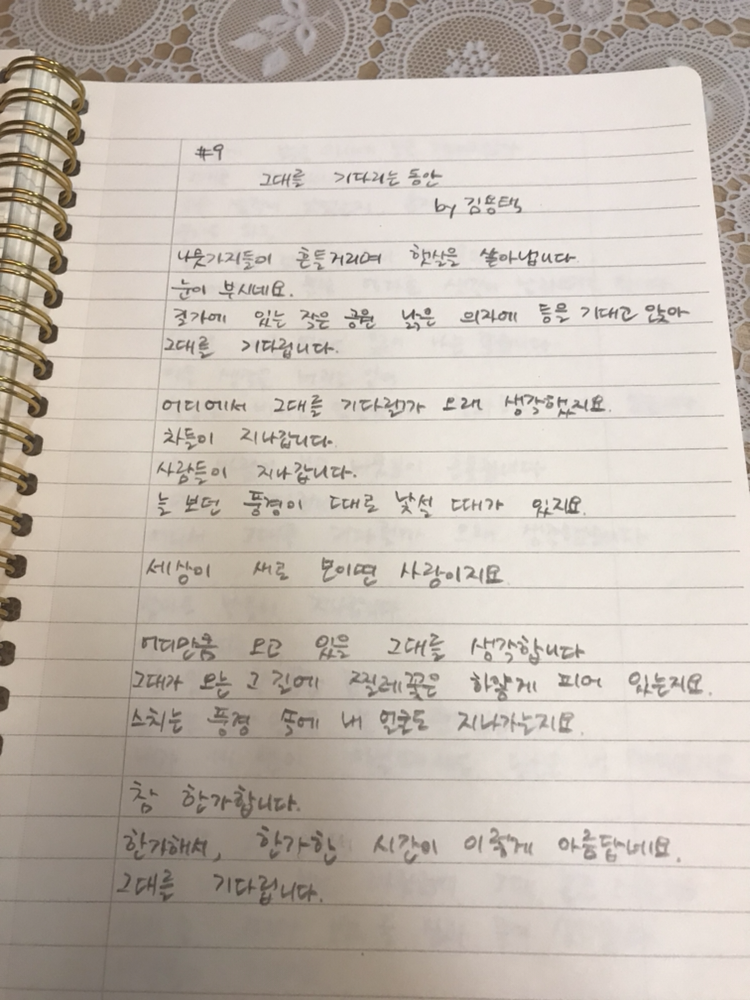 #9
그대를 기다리는 동안
by 김용택
나뭇가지들이 흔들거리며 햇살을 쏟아냅니다
눈이 부시네요.
길가에 있는 작은 공원 낡은 의자에 등을 기대고 앉아
그대를 기다립니다.
어디에서 그대를 기다릴까 오래 생각했지요.
차들이 지나갑니다.
사람들이 지나갑니다.
늘 보던 풍경이 때로 낯설 때가 있지요.
세상이 새로 보이면 사랑이지요.
어디만큼 오고 있을 그대를 생각합니다
그대가 오는 그 길에 찔레꽃은 하얗게 피어 있는지요.
스치는 풍경 속에 내 얼굴도 지나가는지요.
참 한가합니다.
한가해서, 한가한 시간이 이렇게 아름답네요.
그대를 기다립니다.